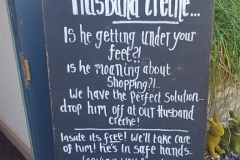 Husband Creche...
Is he getting under your
feet?!
Is he moaning about
Shopping?!..
We have the Perfect solution...
drop him off at our Husband
Creche!
Inside its free! We'll take care
of him! He's in safe hands..